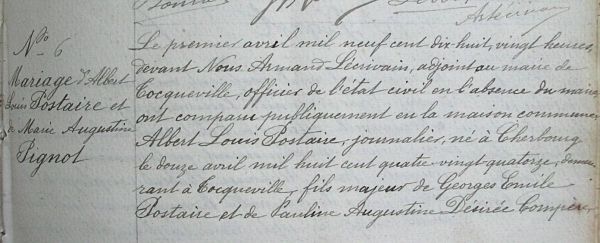 No 6
Mariage d'Albert
Louis Postaire et
de Marie Augustine
Pignot
Le premier avril mil neuf cent dix huit, vingt heures,
devant Nous Armand Lécrivain, adjoint au maire de
Cocqueville, officier de l'état civil en l'absence du maire
ont comparu publiquement en la maison commune
Albert Louis Postaire, journalier, né à Cherbourg
le douze avril mil huit cent quatre-vingt-quatorze, demeu
rant à Cocqueville, fils majeur de Georges Emile
Postaire et de Pauline Augustine Désirée Compère,